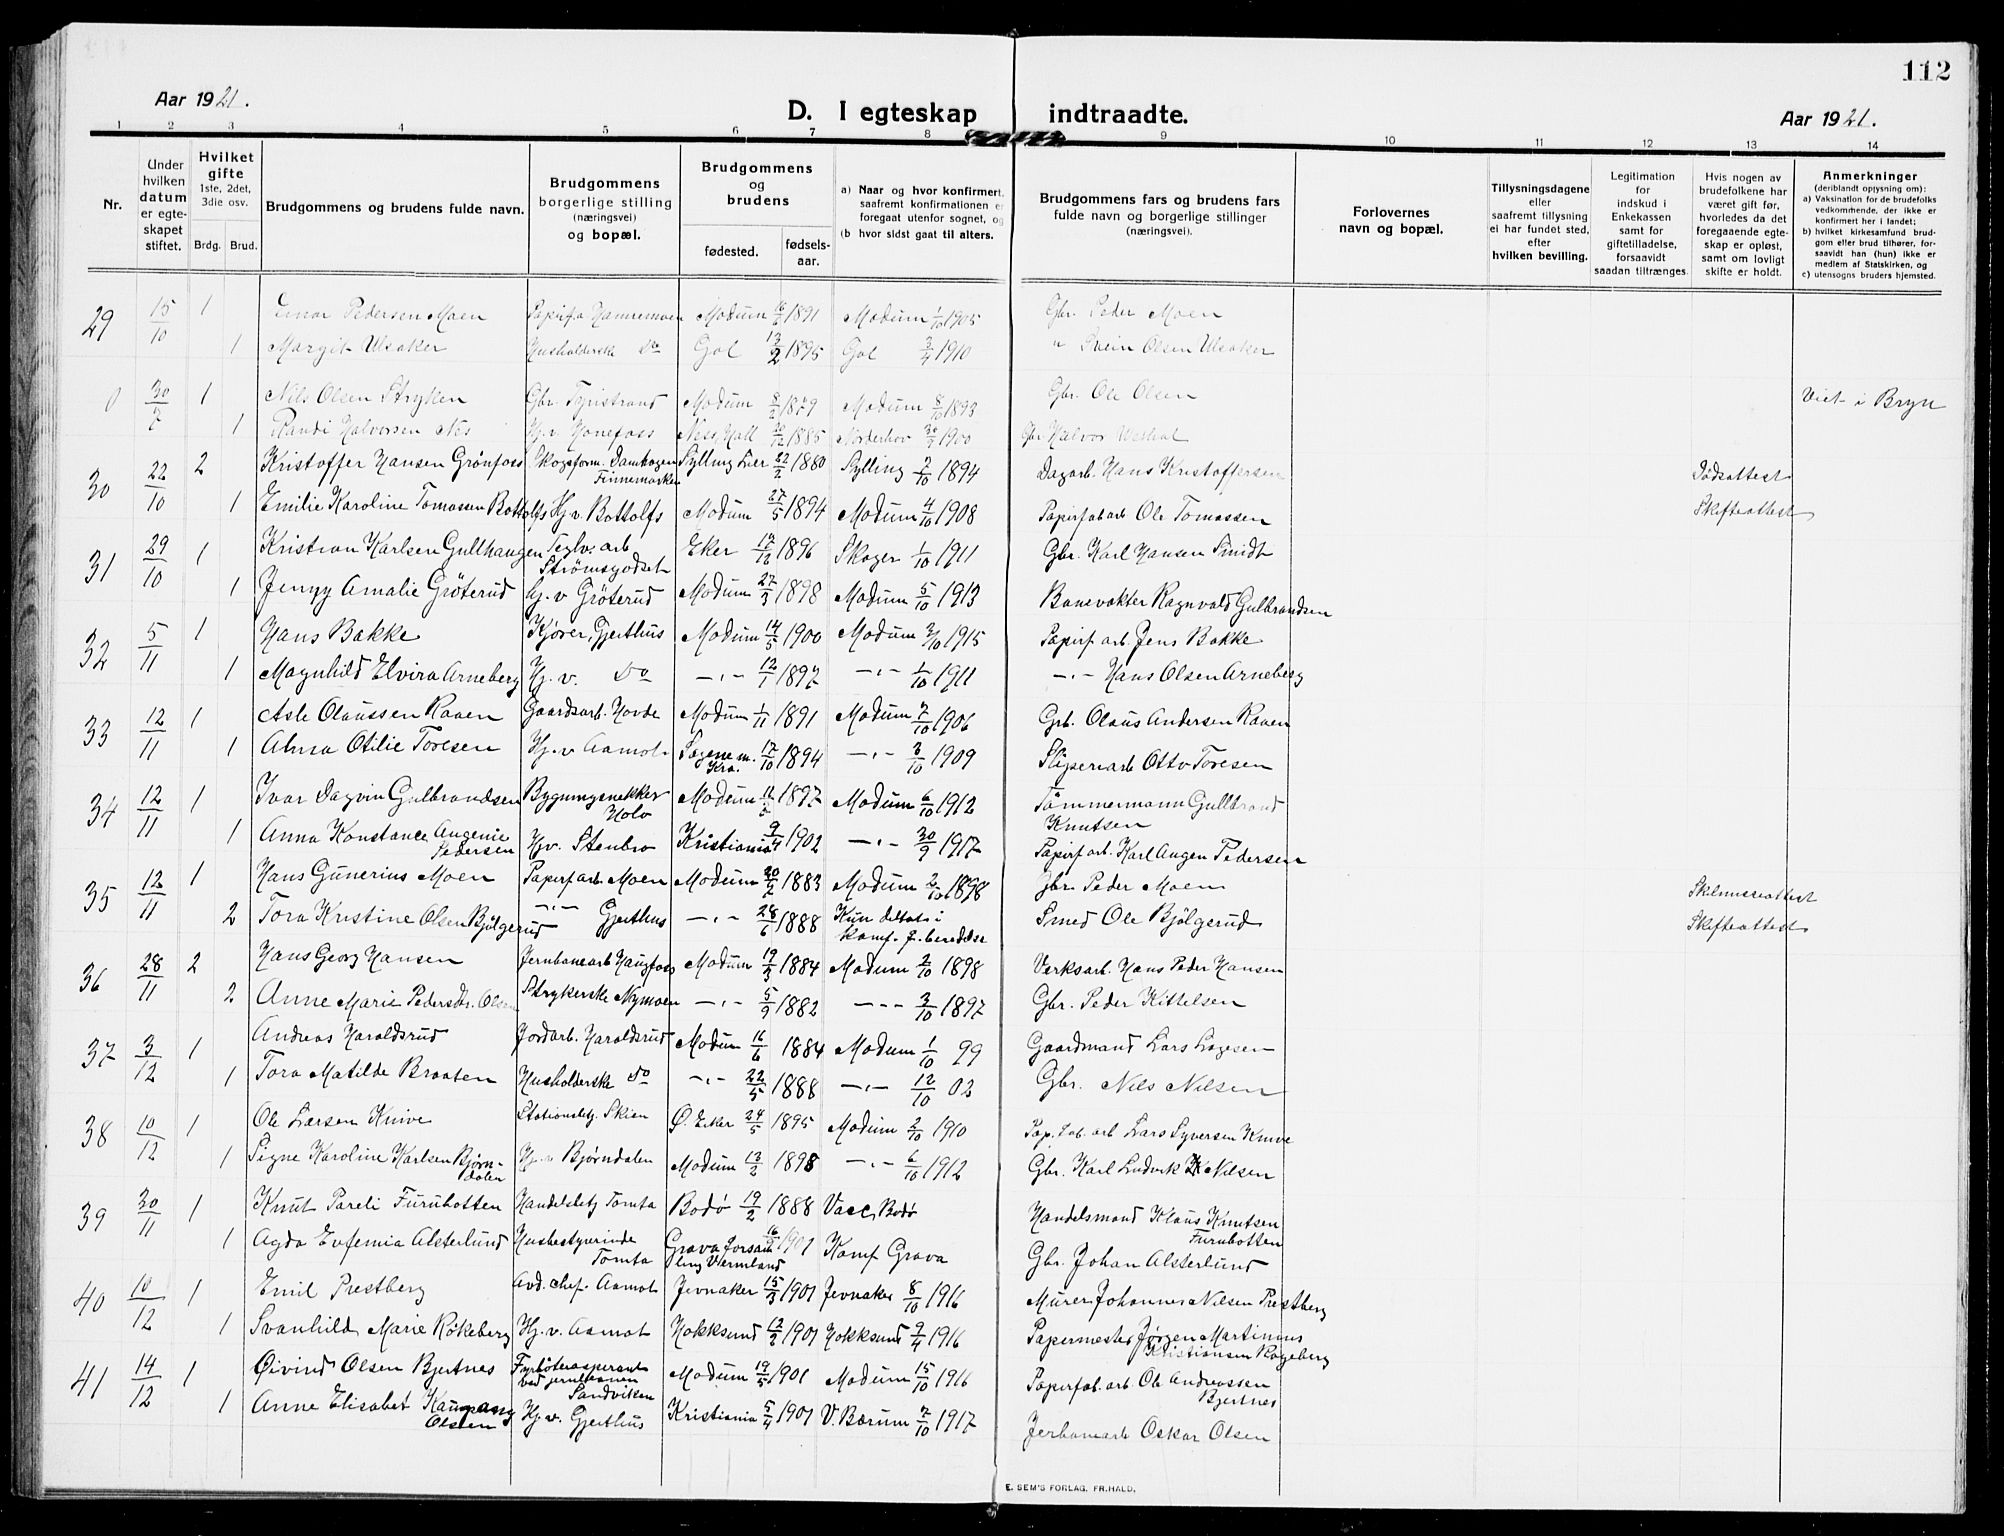 112
Aar 1921.
D. I egteskap indtraadte.
Aar 1921.
1 2 3 4 5 6 7 8 9 10 11 12 13 14
Nr.
Under hvilken datum er egteskapet stiftet.
Hvilket gifte 1ste, 2det, 3die osv.
Brdg. Brud.
Brudgommens og brudens fulde navn.
Brudgommens borgerlige stilling (næringsvei) og bopæl.
Brudgommens og brudens
fødested. fødsels-aar.
a) Naar og hvor konfirmert, saafremt konfirmationen er foregaat utenfor sognet, og
(b hvor sidst gaat til alters.
Brudgommens fars og brudens fars fulde navn og borgerlige stillinger (næringsvei).
Forlovernes navn og bopæl.
Tillysningsdagene eller saafremt tillysning ei har fundet sted, efter hvilken bevilling.
Legitimation for indskud i Enkekassen samt for giftetilladelse, forsaavidt saadan tiltrænges.
Hvis nogen av brudefolkene har været gift før, hvorledes da det foregaaende egteskap er opløst, samt om lovligt skifte er holdt.
Anmerkninger (deriblandt opysning om):
a) Vaksination for de brudefolks vedkommende, der ikke er konfirmert her i landet;
b) hvilket kirkesamfund brudgom eller brud tilhører, forsaavidt han (hun) ikke er medlem af Statskirken, og
c) utensogns bruders hjemsted.
29 15/10 1 Einar Pedersen Moen Papirfa Hamremoen Modum 16/6 1891 Modum 1/10 1905 Gbr. Peder Moen
1 Margit Ulsaker Husholderske Do Gol 13/2 1895 Gol 3/4 1910 " Svein Olsen Ulsaker
0 30/7 1 Nils Olsen Stryken Gbr. Tyristrand Modum 8/2 1879 Modum 8/10 1893 Gbr. Ole Olsen Viet i Bryn
1 Randi Halvorsen Nes Hj.v. Hønefoss Ness, Hall 1885 Norderhov 30/9 1900 Gbr Halvor
30 22/10 2 Kristoffer Hansen Grönfoss Skogsform. Damhagen Finnemarken Sylling Lier 22/2 1880 Sylling 7/10 1894 Dagarb. Hans Kristoffersen Dødsattest
1 Emilie Karoline Tomassen Bottolfs Hj.v. Bottolfs Modum 27/5 1894 Modum 4/10 1908 Papirfab arb Ole Tomassen Skifteattest
31 29/10 1 Kristian Karlsen Gullhaugen Teglv. arb Strømsgodset Eker 17/12 1896 Skoger 1/10 1911 Gbr. Karl Hansen Smidt
1 Jenny Amalie Gröterud hj. v Gröterud Modum 27/3 1898 Modum 5/10 1913 Banevokter Ragnvald Gulbrandsen
32 5/11 1 Hans Bakke Kjører, Gjerthus Modum 14/5 1900 Modum 3/10 1915 Papirf arb. Jens Bakke
1 Magnhild Elvira Arneberg Hj. v. Do -"- 12/1 1897 -"- 1/10 1911 -"- Hans Olsen Arneberg
33 12/11 1 Asle Olaussen Raaen Gaardsarb. Hovde Modum 1/11 1891 Modum 7/10 1906 Grb. Olaus Andersen Raaen
1 Alma Otilie Toresen Hj. v Aamot Sagene m. Kra. 17/10 1894 -"- 3/10 1909 Sliperiarb Otto Toresen
34 12/11 1 Ivar Dagvin Gulbrandsen Bygningsnekker Holv Modum 11/5 1897 Modum 6/10 1912 Tömmermann Gullbrand Knutsen
1 Anna Konstance Augenie Pedersen Hjv. Stenbro Kristiania 9/4 1902 -"- 30/9 1917 Papirf arb. Karl Augen Pedersen
35 12/11 1 Hans Gunerius Moen Papirf arb. Moen Modum 20/2 1883 Modum 2/10 1898 Gbr. Peder Moen Skilmisseattest
2 Tora Kristine Olsen Bjölgerud -"- Gjerthus -"- 28/6 1888 Kun deltat i Komf. f. beredelse Smed Ole Bjölgerud Skifteattest
36 28/11 2 Hans Georg Hansen Jernbanearb Haugfoss Modum 19/3 1884 Modum 2/10 1898 Verksarb. Hans Peder Hansen
2 Anne Marie Pedersdtr. Olsen Strykerske Nymoen -"- 5/9 1882 -"- 3/10 1897 Gbr. Peder Kittelsen
37 3/12 1 Andreas Haroldsrud Jordarb. Haroldsrud Modum 16/6 1884 Modum 1/10 99 Gaardmand Lars Lagesen
1 Tora Matilde Braaten Husholderske Do -"- 22/5 1888 -"- 12/10 02 Gbr. Nils Nilsen
38 10/12 1 Ole Larsen Knive Stationsbtj. Skien Ø. Eker 24/5 1895 Modum 2/10 1910 Pap. fab. arb Lars Syversen Knive
1 Signe Karoline Karlsen Bjørndalen Hj. v Bjørndalen Modum 13/2 1898 -"- 6/10 1912 Gbr. Karl Ludvik Nilsen
39 30/11 1 Knut Pareli Furubotten Handelsbtj Tomta Bodø 19/2 1888 Vacc, Bodø Handelsmand Klaus Knutsen Furubotten
1 Agda Eufemia Alsterlund Husbestyrerinde Tomta Grava forsamling Vermland 1901 Komf Grava Gbr. Johan Alsterlund
40 10/12 1 Emil Prestberg Avd. chef. Aamot Jevnaker 15/3 1901 Jevnaker 8/10 1916 Murer Johannes Nilsen Prestberg
1 Svanhild Marie Røkeberg Hj. v. Aamot Hokksund 12/2 1901 Hokksund 9/4 1916 Papermester Jörgen Martinius Kristiansen Røgeberg
41 14/12 1 Øivind Olsen Bjertnes Fyrbøteraspirant ved jernbanen Sandviken Modum 19/5 1901 Modum 15/10 1916 Papirfab. arb. Ole Andreassen Bjertnes
1 Anne Elisabet Kaupang Olsen Hj. v. Gjerthus Kristiania 5/4 1901 V. Bærum 7/10 1917 Jerbanearb Oskar Olsen
E. SEM'S FORLAG, FR.HALD.